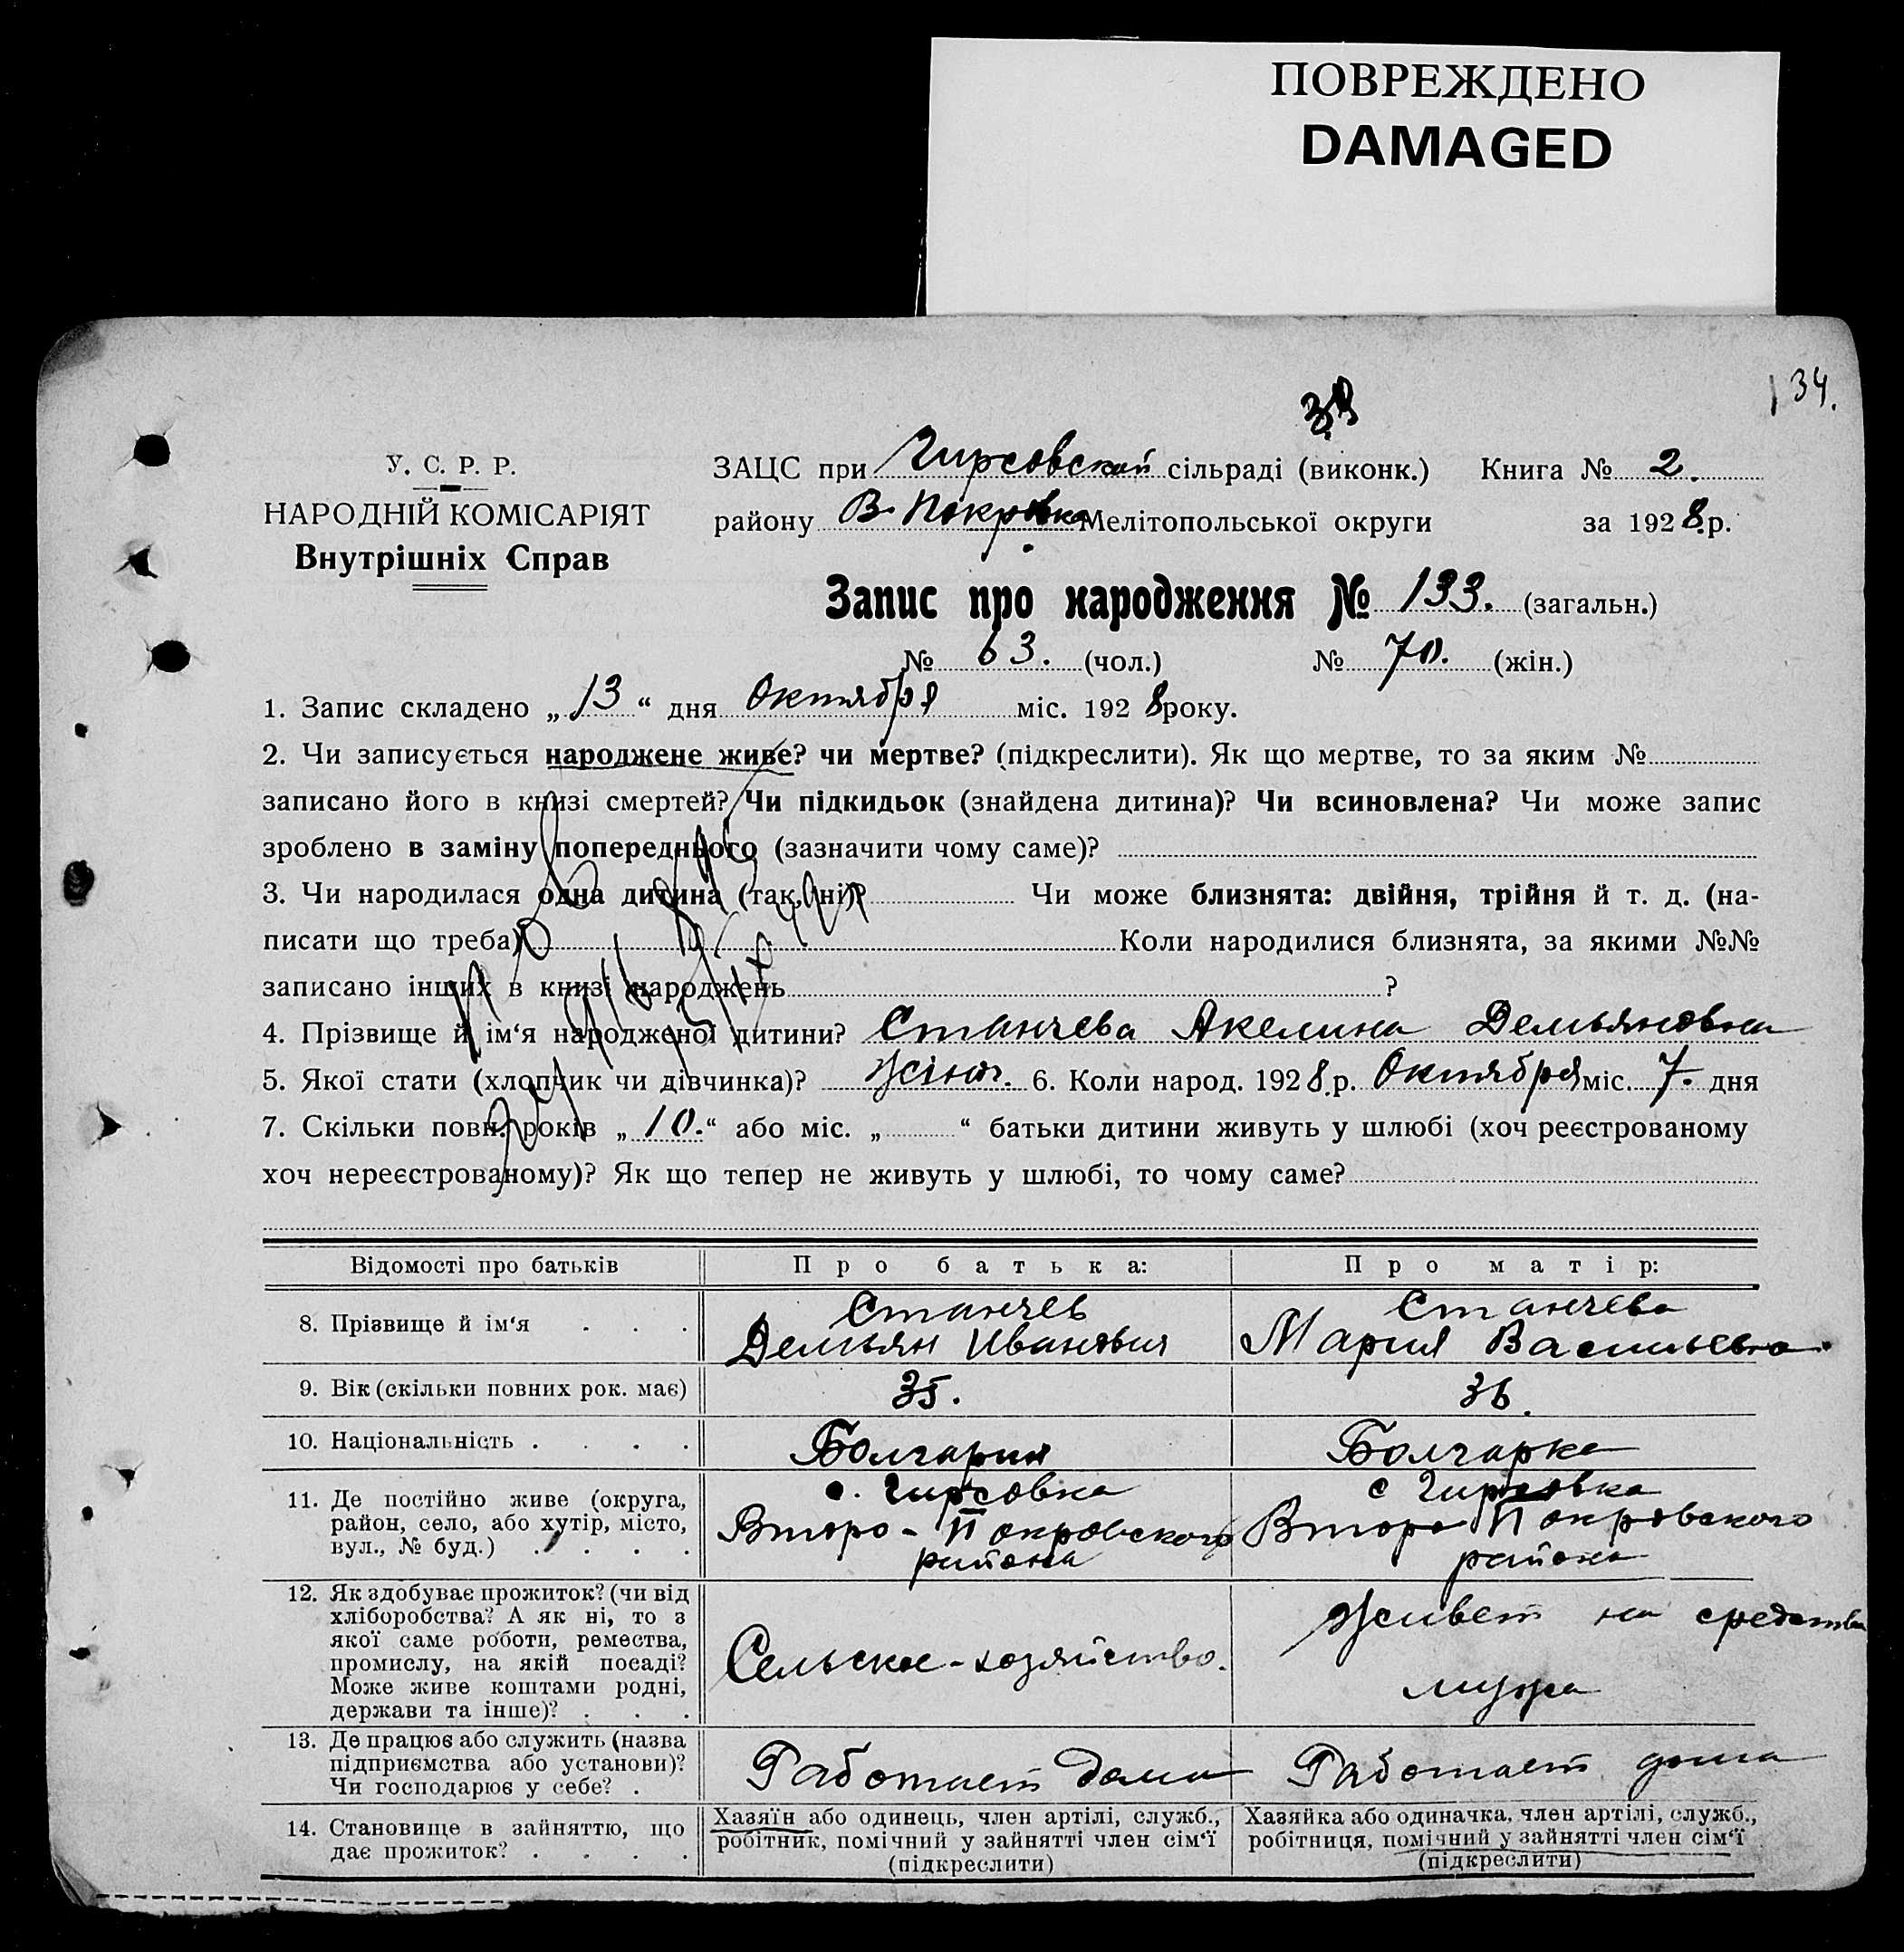 ПОВРЕЖДЕНО
DAMAGED
134.
У. С. Р. Р.
НАРОДНІЙ КОМІСАРІЯТ
Внутрішніх Справ
ЗАЦС при Гирсовской сільраді (виконк.) Книга № 2.
району В. Покровка Мелітопольської округи за 1928 р.
Запис про народження № 133. (загальн.)
№ 63. (чол.) № 70. (жін.)
1. Запис складено „13“ дня Октября міс. 1928 року.
2. Чи записується народжене живе? чи мертве? (підкреслити). Як що мертве, то за яким №
записано його в книзі смертей? Чи підкидьок (знайдена дитина)? Чи всиновлена? Чи може запис
зроблено в заміну попереднього (зазначити чому саме)?
3. Чи народилася одна дитина (так, ні)? Чи може близнята: двійня, трійня й т. д. (на-
писати що треба) Коли народилися близнята, за якими №№
записано інших в книзі народжень ?
4. Прізвище й ім‘я народженої дитини? Станчева Акелина Демьяновна
5. Якої стати (хлопчик чи дівчинка)? жіноч. 6. Коли народ. 1928 р. Октября міс. 7. дня
7. Скільки повн. років „10.“ або міс. „ “ батьки дитини живуть у шлюбі (хоч реєстрованому
хоч нереєстрованому)? Як що тепер не живуть у шлюбі, то чому саме?
Відомості про батьків Про батька: Про матір:
8. Прізвище й ім‘я . . .
Станчев
Демьян Иванович
Станчева
Мария Васильевна
9. Вік (скільки повних рок. має) 35. 36.
10. Національність . . . . Болгарин Болгарка
11. Де постійно живе (округа,
район, село, або хутір, місто,
вул., № буд.) . . . .
с. Гирсовка
Второ-Покровского
района
с Гирсовка
Второ Покровского
района
12. Як здобуває прожиток? (чи від
хліборобства? А як ні, то з
якої саме роботи, ремества,
промислу, на якій посаді?
Може живе коштами родні,
держави та інше)? . . .
Сельское-хозяйство.
Живет на средства
мужа
13. Де працює або служить (назва
підприємства або установи)?
Чи господарює у себе? .
Работает дома
Работает дома
14. Становище в зайняттю, що
дає прожиток? . . . .
Хазяїн або одинець, член артілі, служб.,
робітник, помічний у зайнятті член сім‘ї
(підкреслити)
Хазяйка або одиначка, член артілі, служб.,
робітниця, помічний у зайнятті член сім‘ї
(підкреслити)